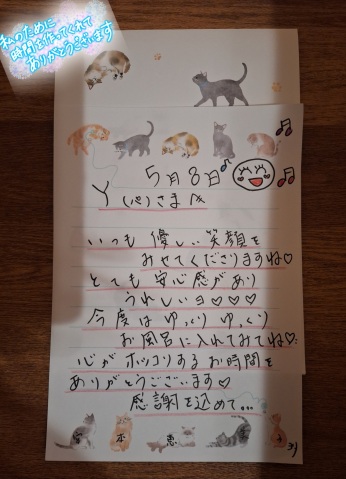 私のために
時間を作ってくれて
ありがとうございます
5月8日
Y(パ)さまへ
いつも 優しい 笑顔を
みせてくださりますね♡
とても 安心感があり
うれしいヨ♡♡♡♡
今度は ゆっくり ゆっくり
お風呂に入れてみてね♡
心がホッコリするお時間を
ありがとうございます♡
感謝を込めて…